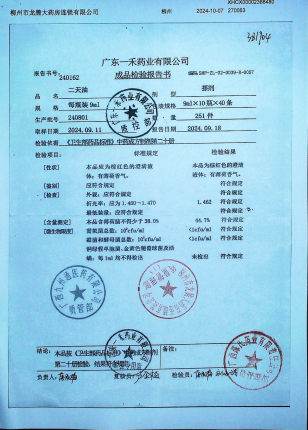 柳州市龙腾大药房连锁有限公司 柳州 2024-10-07 270083
XHCX0002386480
381704
广东一禾药业有限公司
成品检验报告书
报告书号: 240162
品名 二天油 剂型 搽剂
规格 每瓶装9ml 包装规格 9ml×10瓶×40条
生产批号 240801 251件
取样日期 2024.09.11 报告日期 2024.09.18
检验依据 《卫生部药品标准》中药成方制剂第二十册
检验项目: 标准规定 检验结果
[性状] 本品应为棕红色的澄清液 本品为棕红色的澄清
体；有薄荷香气。 液体；有薄荷香气。
[鉴别] 应符合规定 符合规定
[检查] 外观：应符合规定 符合规定
折光率：应为1.400~1.470 1.462 符合规定
最低装量：应符合规定 符合规定
[含量测定] 本品含薄荷脑不得少于38.0% 符合规定
[微生物限度] 需氧菌总数：10²cfu/ml <1cfu/ml 符合规定
霉菌和酵母菌总数：10¹cfu/ml <1cfu/ml 符合规定
铜绿假单胞菌、金黄色葡萄球菌及
每1ml均不得检出 未检出 符合规定
结论: 本品按《卫生部药品标准》中药成方制剂 备注:
第二十册检验，结果符合规定
负责人: 复核员: 检验员: